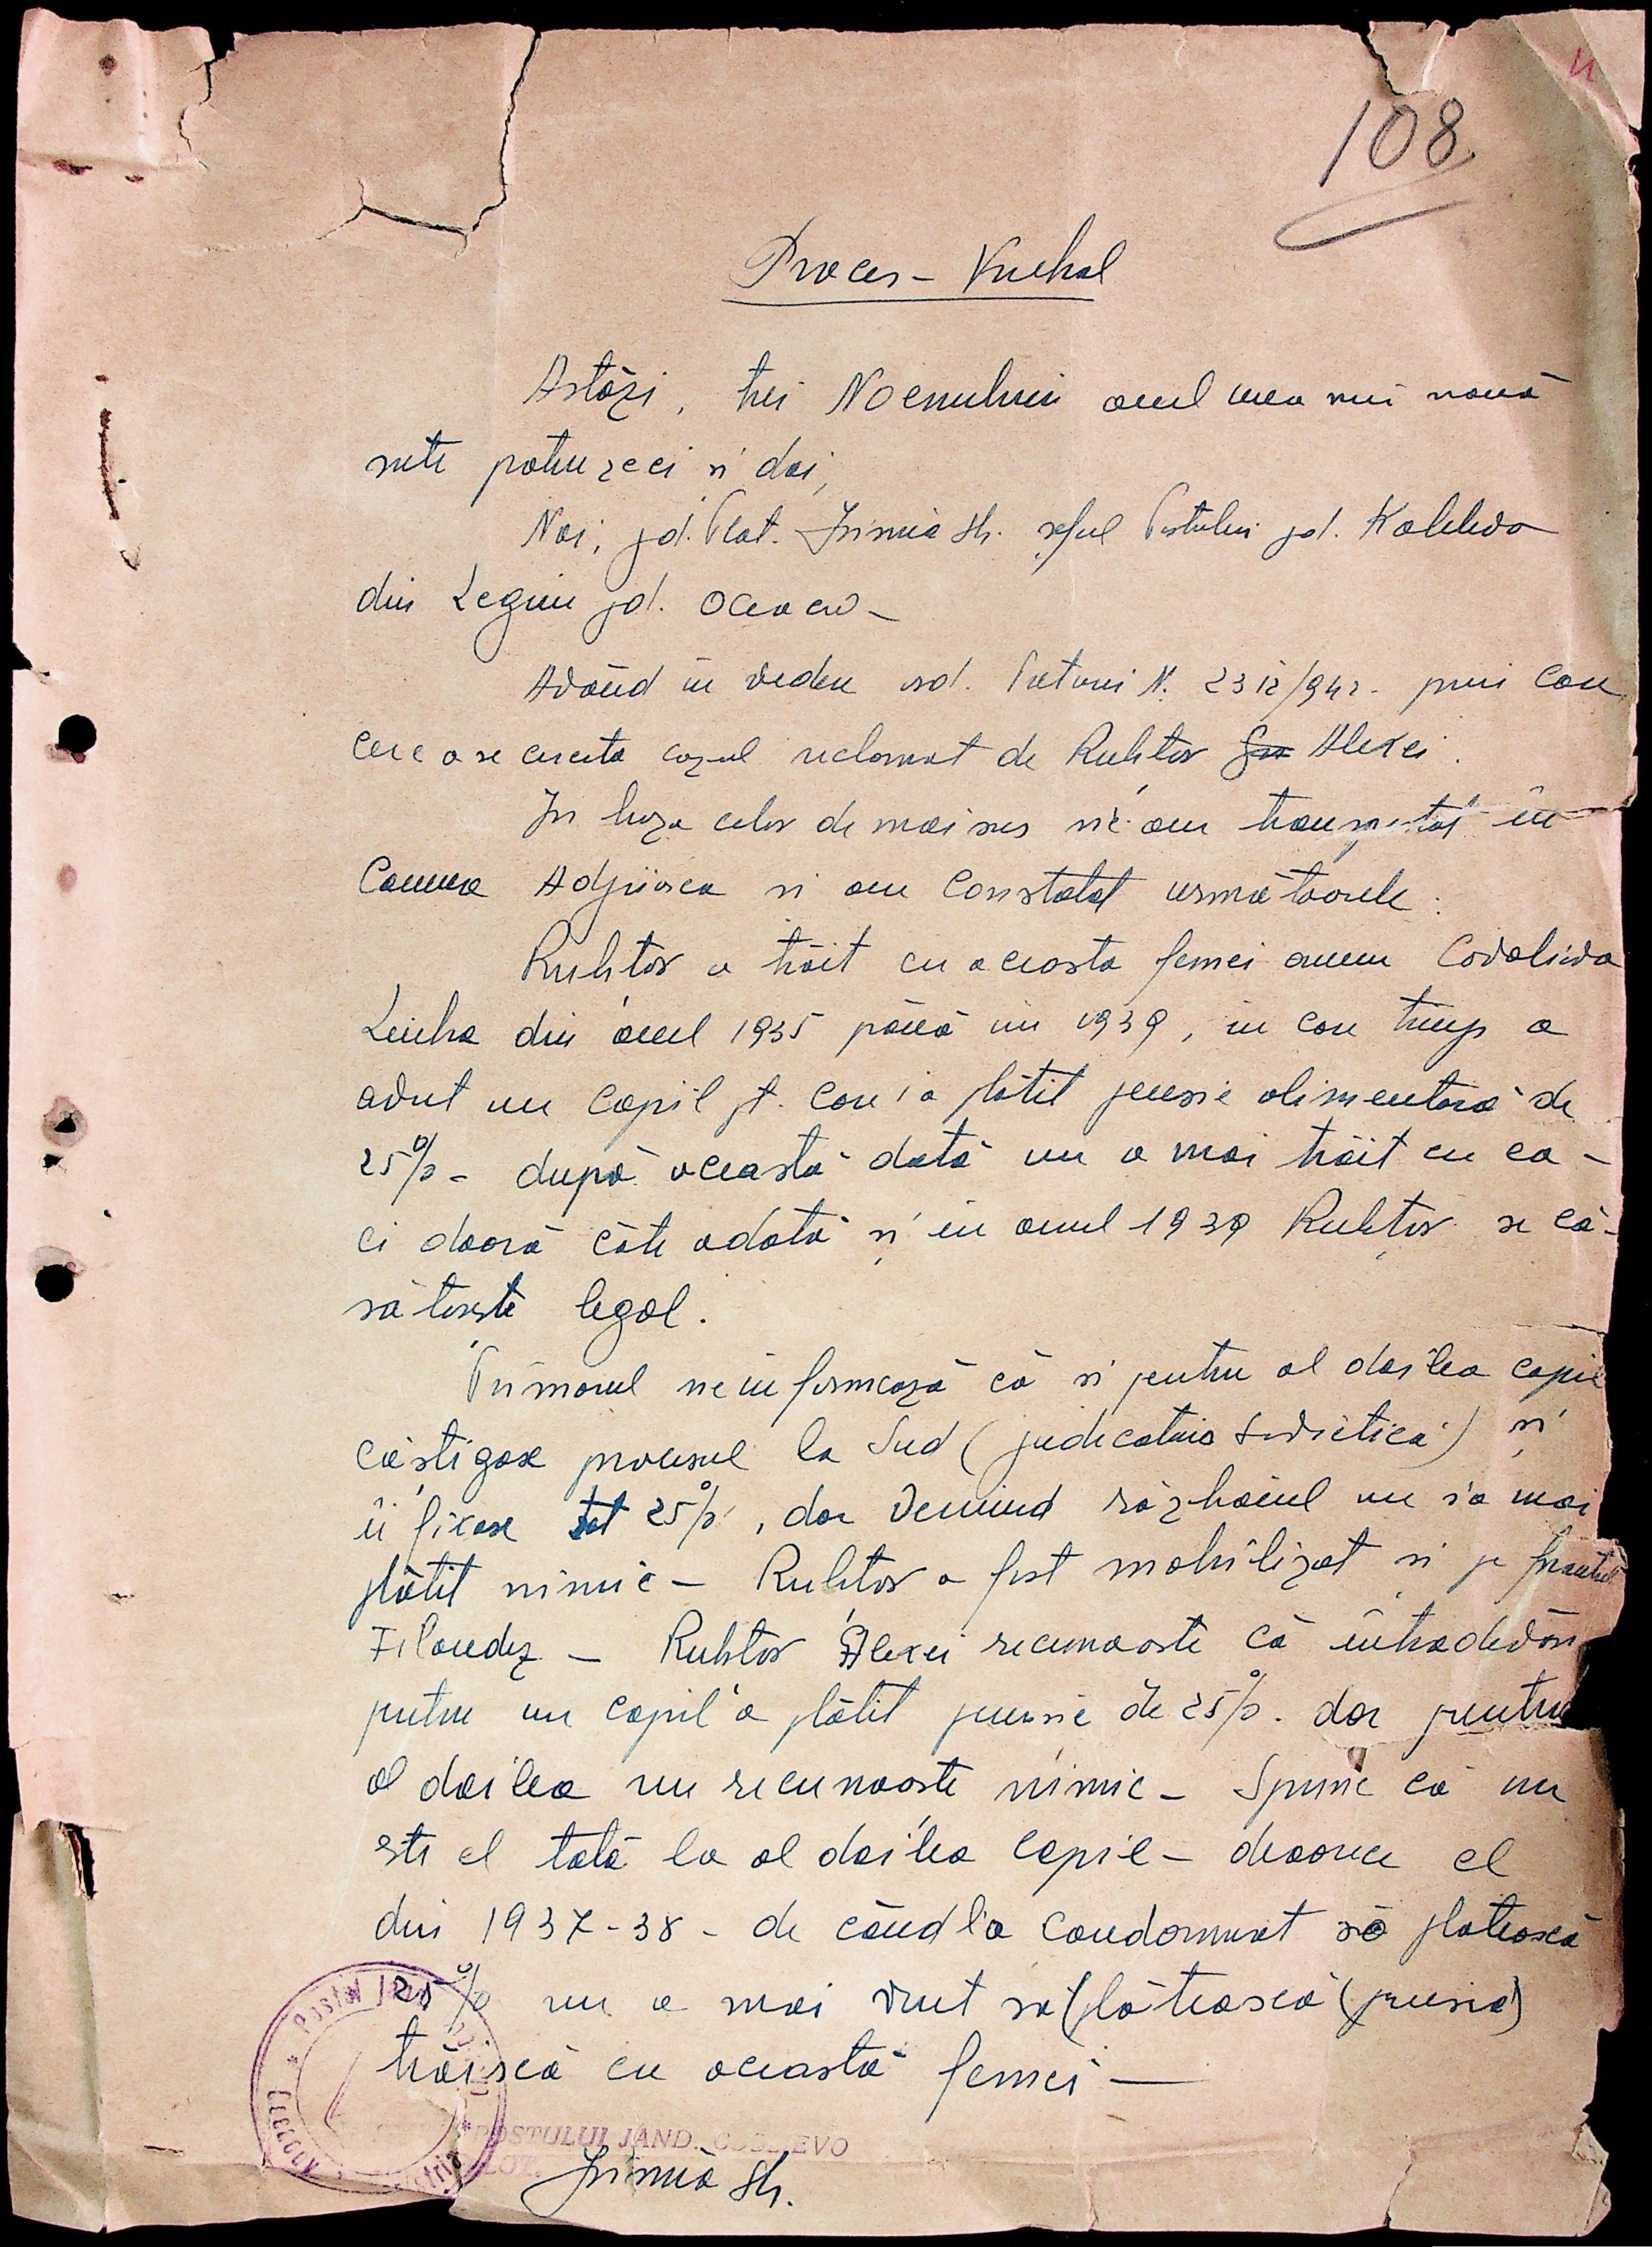 108
Proces-Verbal
Astăzi, trei Noembrie anul una mii nouă
sute patruzeci și doi,
Noi, jd. Plot. Irimia St. șeful Postului jd.
din Legiun jd. Oceacov-
Având in vedere ord. Preturei N. 2312/942- prin care
cere a se cerceta cazul reclamat de Ruhtor Alexei.
In baza celor de mai sus ne-am transportat în
Comuna și am constatat următoarele:
Ruhtor a trăit cu aceasta femei anume Covaliova
din anul 1935 până in 1939, in care timp a
avut un copil pt. care i'a plătit pensie alimentară de
25% - după această dată nu a mai trăit cu ea -
ci doară câte odată și in anul 1939 Ruhtor se că-
sătorește legal.
Primarul ne informează că și pentru al doilea copil
câștigase procesul la Sud (judecatoria Sovietică) și
îi fixase tot 25%, dar venind războiul nu s'a mai
plătit nimic - Ruhtor a fost mobilizat și pe frontul
Filandez - Ruhtor Alexei recunoaște că întradevăr
pentru un copil a plătit pensie de 25%. dar pentru
al doilea nu recunoaște nimic - Spune că nu
este el tată la al doilea copil - deoarece el
din 1937-38 - de când l'a condamnat să plătească
25% nu a mai vrut să (plătească (pensia)
trăiscă cu această femei -
POSTULUI JAND.
Irimia St.